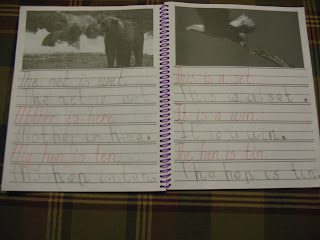 The net is wet.
The net is wet.
Mother is here.
Mother is here.
My hen is ten.
My hen is ten.
This is a set.
This is a set.
It is a win.
It is a win.
The hen is tin.
The hen is tin.